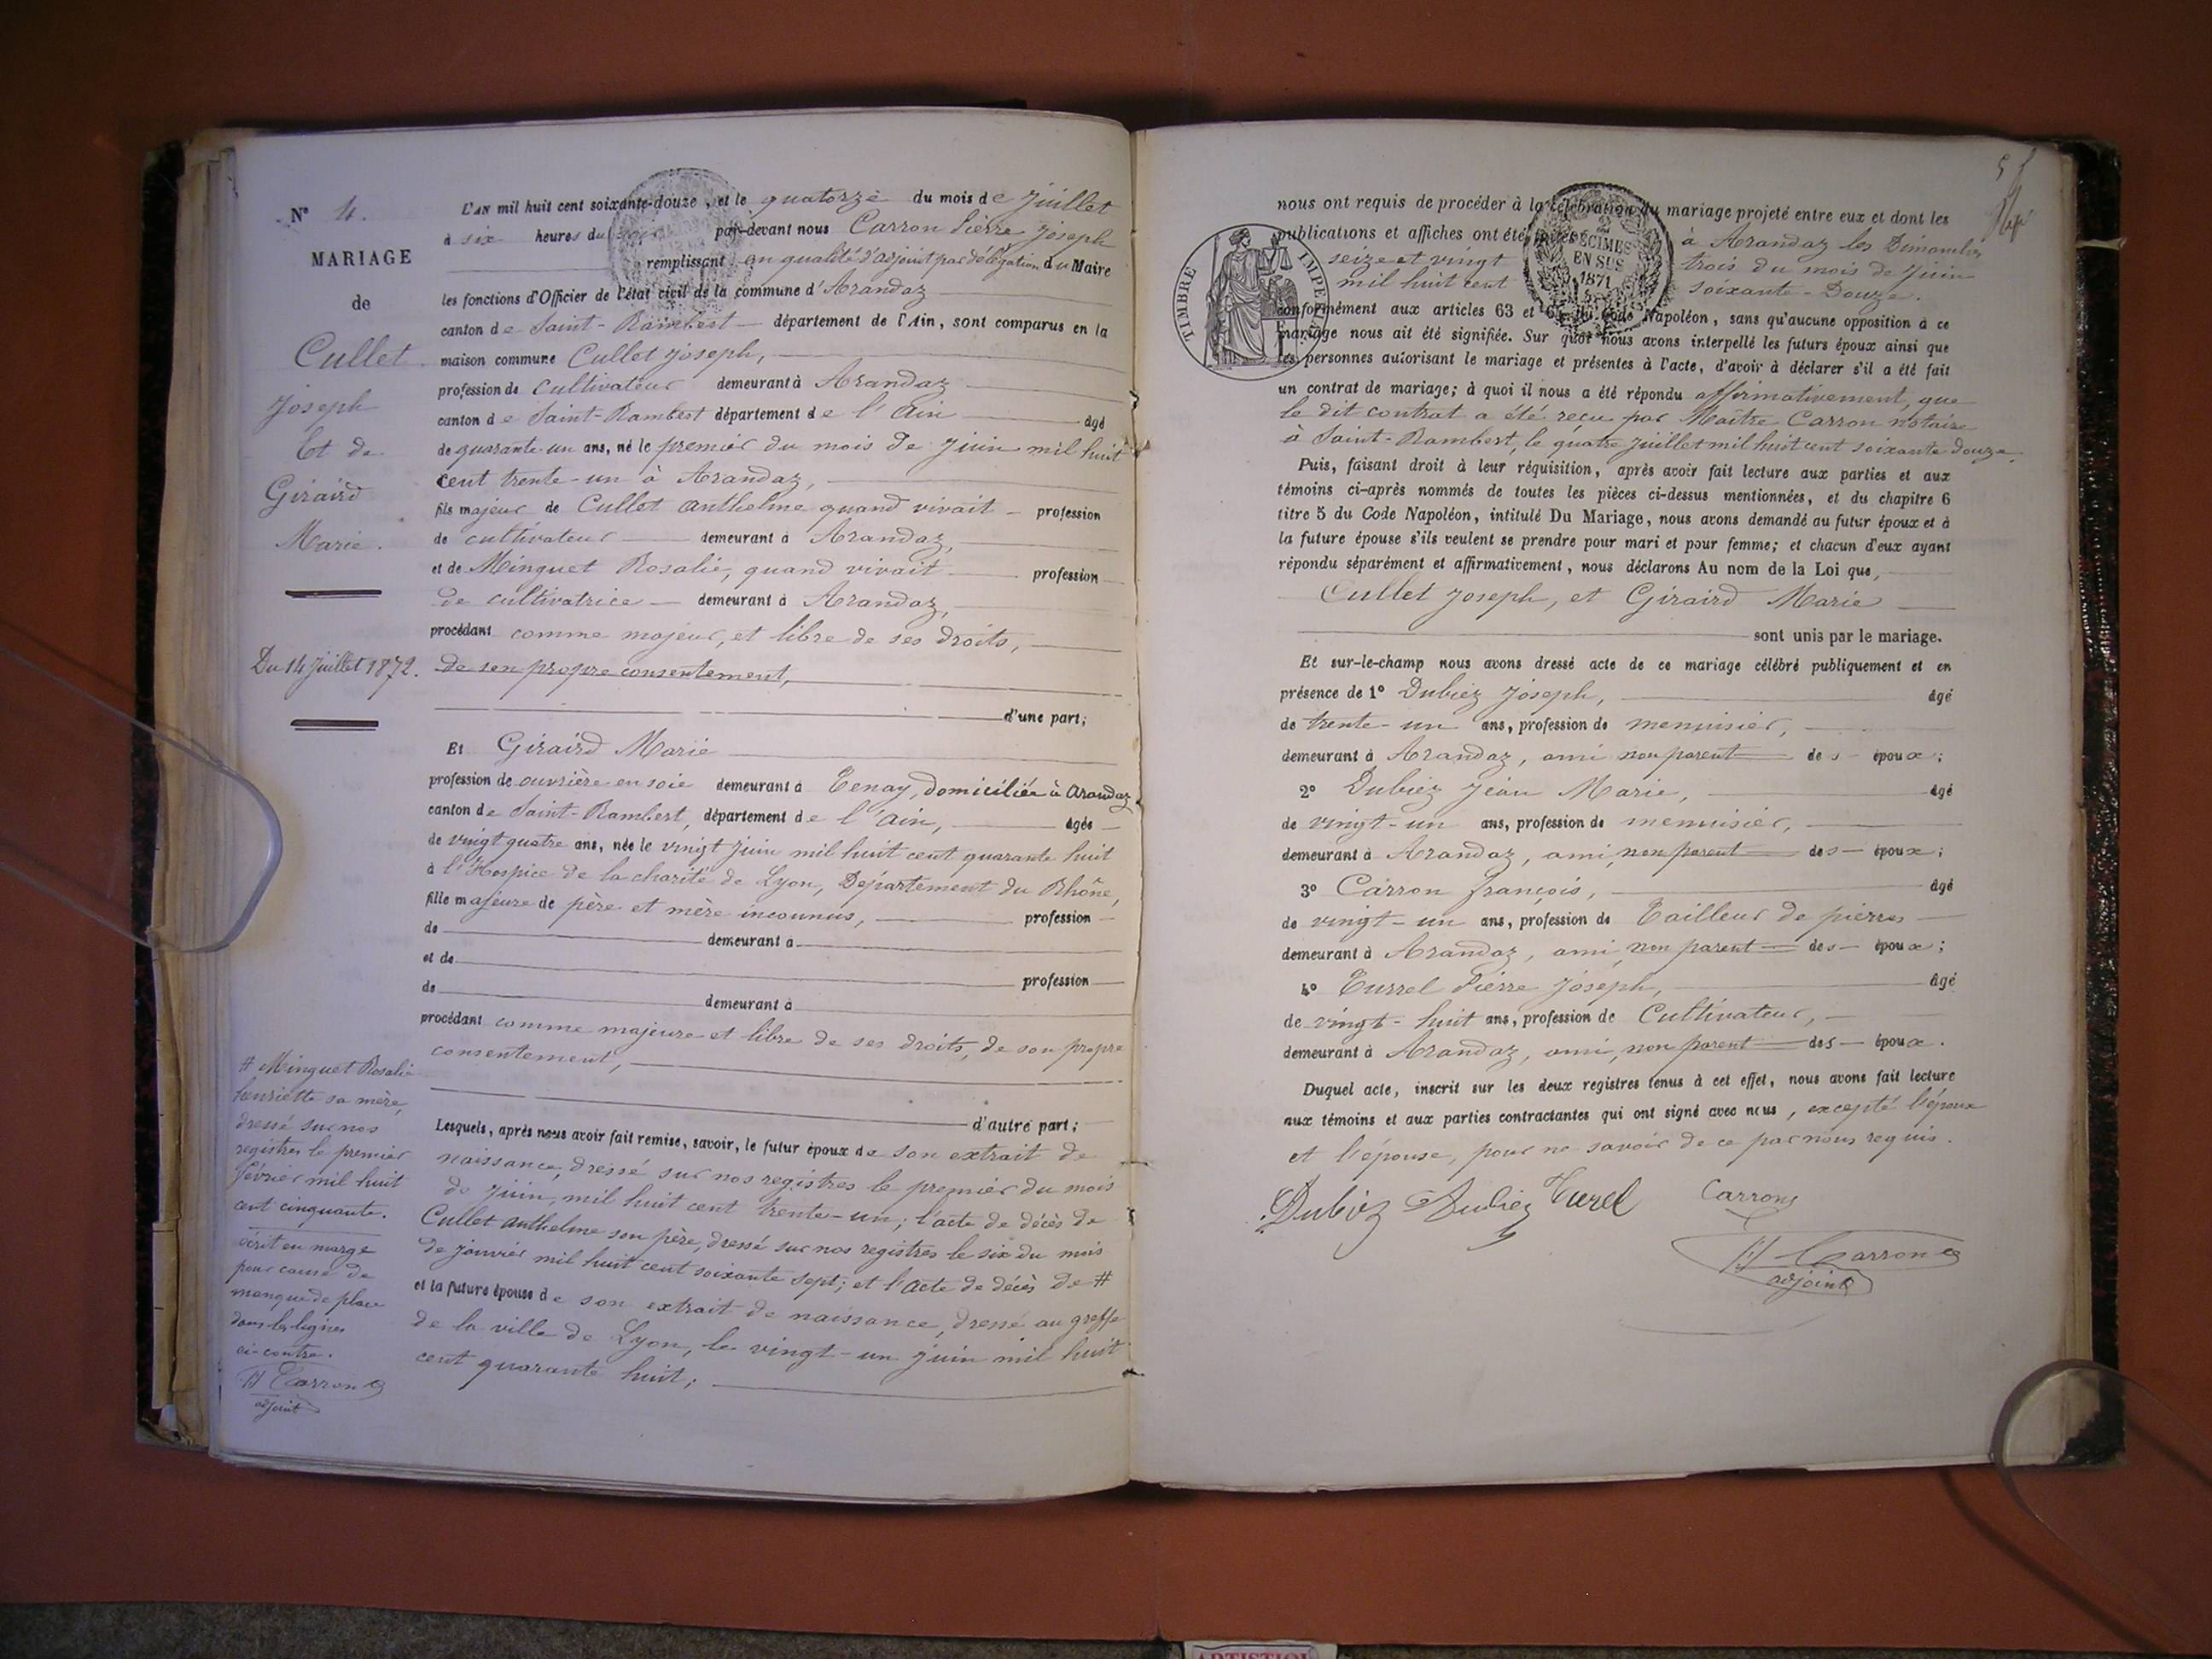 Nº 4.
MARIAGE
de
Cullet
Joseph
Et de
Giraird
Marie.
Du 14 Juillet 1872.
L'AN mil huit cent soixante-douze, et le quatorze du mois de Juillet
à six heures du soir par-devant nous Carron Pierre Joseph
remplissant en qualité d'adjoint par délégation du Maire
les fonctions d'Officier de l'état civil de la commune d'Arandaz
canton de Saint-Rambert département de l'Ain, sont comparus en la
maison commune Cullet Joseph,
profession de Cultivateur demeurant à Arandaz
canton de Saint-Rambert département de l'Ain âgé
de quarante un ans, né le premier du mois de Juin mil huit
cent trente-un à Arandaz,
fils majeur de Cullet Anthelme quand vivait profession
de cultivateur demeurant à Arandaz,
et de Minguet Rosalie, quand vivait profession
de cultivatrice demeurant à Arandaz,
procédant comme majeur, et libre de ses droits,
de son propre consentement,
d'une part;
Et Giraird Marie
profession de ouvrière en soie demeurant à Tenay, domiciliée à Arandaz
canton de Saint-Rambert, département de l'Ain, âgée
de vingt quatre ans, née le vingt Juin mil huit cent quarante huit
à l'Hospice de la charité de Lyon, Département du Rhône,
fille majeure de père et mère inconnus, profession
de demeurant à
et de profession
de demeurant à
procédant comme majeure et libre de ses droits, de son propre
consentement,
d'autre part;
Lesquels, après nous avoir fait remise, savoir, le futur époux de son extrait de
naissance, dressé sur nos registres le premier du mois
de Juin, mil huit cent trente-un; l'acte de décès de
Cullet Anthelme son père, dressé sur nos registres le six du mois
de janvier mil huit cent soixante sept; et l'acte de décès de #
et la future épouse de son extrait de naissance, dressé au greffe
de la ville de Lyon, le vingt-un Juin mil huit
cent quarante huit;
# Minguet Rosalie
henriette sa mère,
dressé sur nos
registres le premier
février mil huit
cent cinquante.
écrit en marge
pour cause de
manque de place
dans les lignes
ci-contre.
Carron
adjoint
5
nous ont requis de procéder à la célébration du mariage projeté entre eux et dont les
publications et affiches ont été faites à Arandaz les Dimanches
seize et vingt trois du mois de Juin
mil huit cent soixante-Douze.
TIMBRE IMPE
DÉCIMES
EN SUS
1871
conformément aux articles 63 et du Code Napoléon, sans qu'aucune opposition à ce
mariage nous ait été signifiée. Sur quoi nous avons interpellé les futurs époux ainsi que
les personnes autorisant le mariage et présentes à l'acte, d'avoir à déclarer s'il a été fait
un contrat de mariage; à quoi il nous a été répondu affirmativement, que
le dit contrat a été reçu par Maître Carron notaire
à Saint-Rambert, le quatre Juillet mil huit cent soixante douze.
Puis, faisant droit à leur réquisition, après avoir fait lecture aux parties et aux
témoins ci-après nommés de toutes les pièces ci-dessus mentionnées, et du chapitre 6
titre 5 du Code Napoléon, intitulé Du Mariage, nous avons demandé au futur époux et à
la future épouse s'ils veulent se prendre pour mari et pour femme; et chacun d'eux ayant
répondu séparément et affirmativement, nous déclarons Au nom de la Loi que,
Cullet Joseph, et Giraird Marie
sont unis par le mariage.
Et sur-le-champ nous avons dressé acte de ce mariage célébré publiquement et en
présence de 1º Dubiez Joseph, âgé
de trente-un ans, profession de menuisier,
demeurant à Arandaz, ami non parent des époux;
2º Dubiez Jean Marie, âgé
de vingt-un ans, profession de menuisier,
demeurant à Arandaz, ami, non parent des époux;
3º Carron françois, âgé
de vingt-un ans, profession de Tailleur de pierres
demeurant à Arandaz, ami, non parent des époux;
4º Turrel Pierre Joseph, âgé
de vingt-huit ans, profession de Cultivateur,
demeurant à Arandaz, ami, non parent des époux.
Duquel acte, inscrit sur les deux registres tenus à cet effet, nous avons fait lecture
aux témoins et aux parties contractantes qui ont signé avec nous, excepté l'époux
et l'épouse, pour ne savoir de ce par nous requis.
Dubiez Dubiez Turel Carron
Carron
adjoint